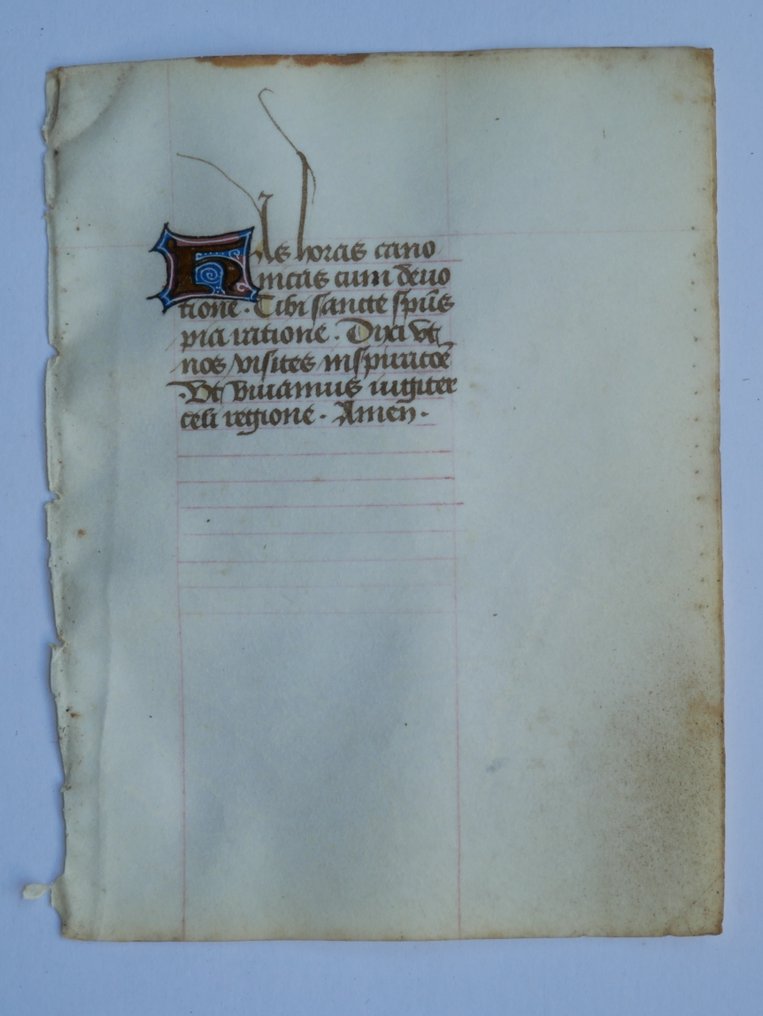 HAs horas cano
nicas cum deuo
tione · Tibi sancte sp̄us
pia ratione · Dixi vt
nos visites inspiratōe
· Vt viuamus iugiter
celi regione · Amen ·